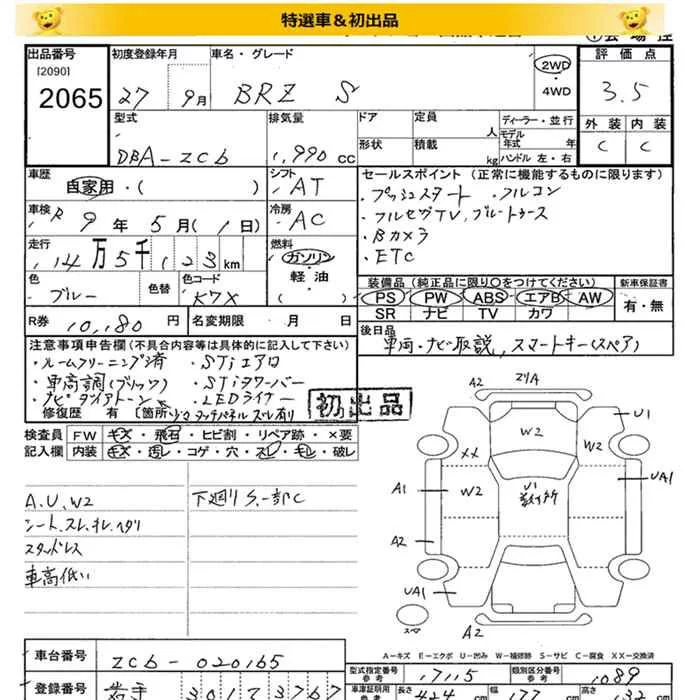 特選車&初出品
出品番号 初度登録年月 車名・グレード 評価点
[2090]
2065 27 9月 BRZ S 2WD
・4WD 3.5
型式 排気量 ドア 定員 人 ディーラー・並行 外装 内装
モデル年式 年
DBA-ZC6 1,990 cc 形状 積載 kg ハンドル 左・右 C C
車歴 シフト セールスポイント(正常に機能するものに限ります)
自家用・( ) AT ・プッシュスタート ・フルコン
車検 冷房 ・フルセグTV,ブルートゥース
R 9年 5月(1日) AC ・Bカメラ
走行 燃料 ・ETC
14万5千123km ガソリン
・軽油
( )
色 色替 色コード 装備品(純正品に限り○をつけてください) 新車保証書
ブルー K7X PS PW ABS エアB AW 有・無
SR ナビ TV カワ
R券 10,180円 名変期限 月 日 後日品
車両・ナビ取説,スマートキー(スペア)
注意事項申告欄(不具合内容等は具体的に記入して下さい)
・ルームクリーニング済 ・STiエアロ
・車高調(ブリッツ) ・STiタワーバー
・ナビダイヤトーン ・LEDライナー
修復歴 有 [箇所 タッチパネルズレ有り
初出品
検査員 FW キズ・飛石・ヒビ割・リペア跡・×要
記入欄 内装 キズ・汚レ・コゲ・穴・スレ・キレ・破レ
A.U.W2 下廻りS.一部C
シート.スレ.キレ.ヘタリ
スタッドレス
車高低い
A2
U1
W2
XX
W2
A1
W2
U1
UA1
A2
UA1
スペア
A2
A-キズ E-エクボ U-凹み W-補修跡 S-サビ C-腐食 XX-交換済
車台番号 ZC6-020165 型式指定番号 参考 17115 類別区分番号 参考 1089
登録番号 岩手 301 て 3767 車庫証明用 参考 長さ 424cm 幅 177 高さ 132cm